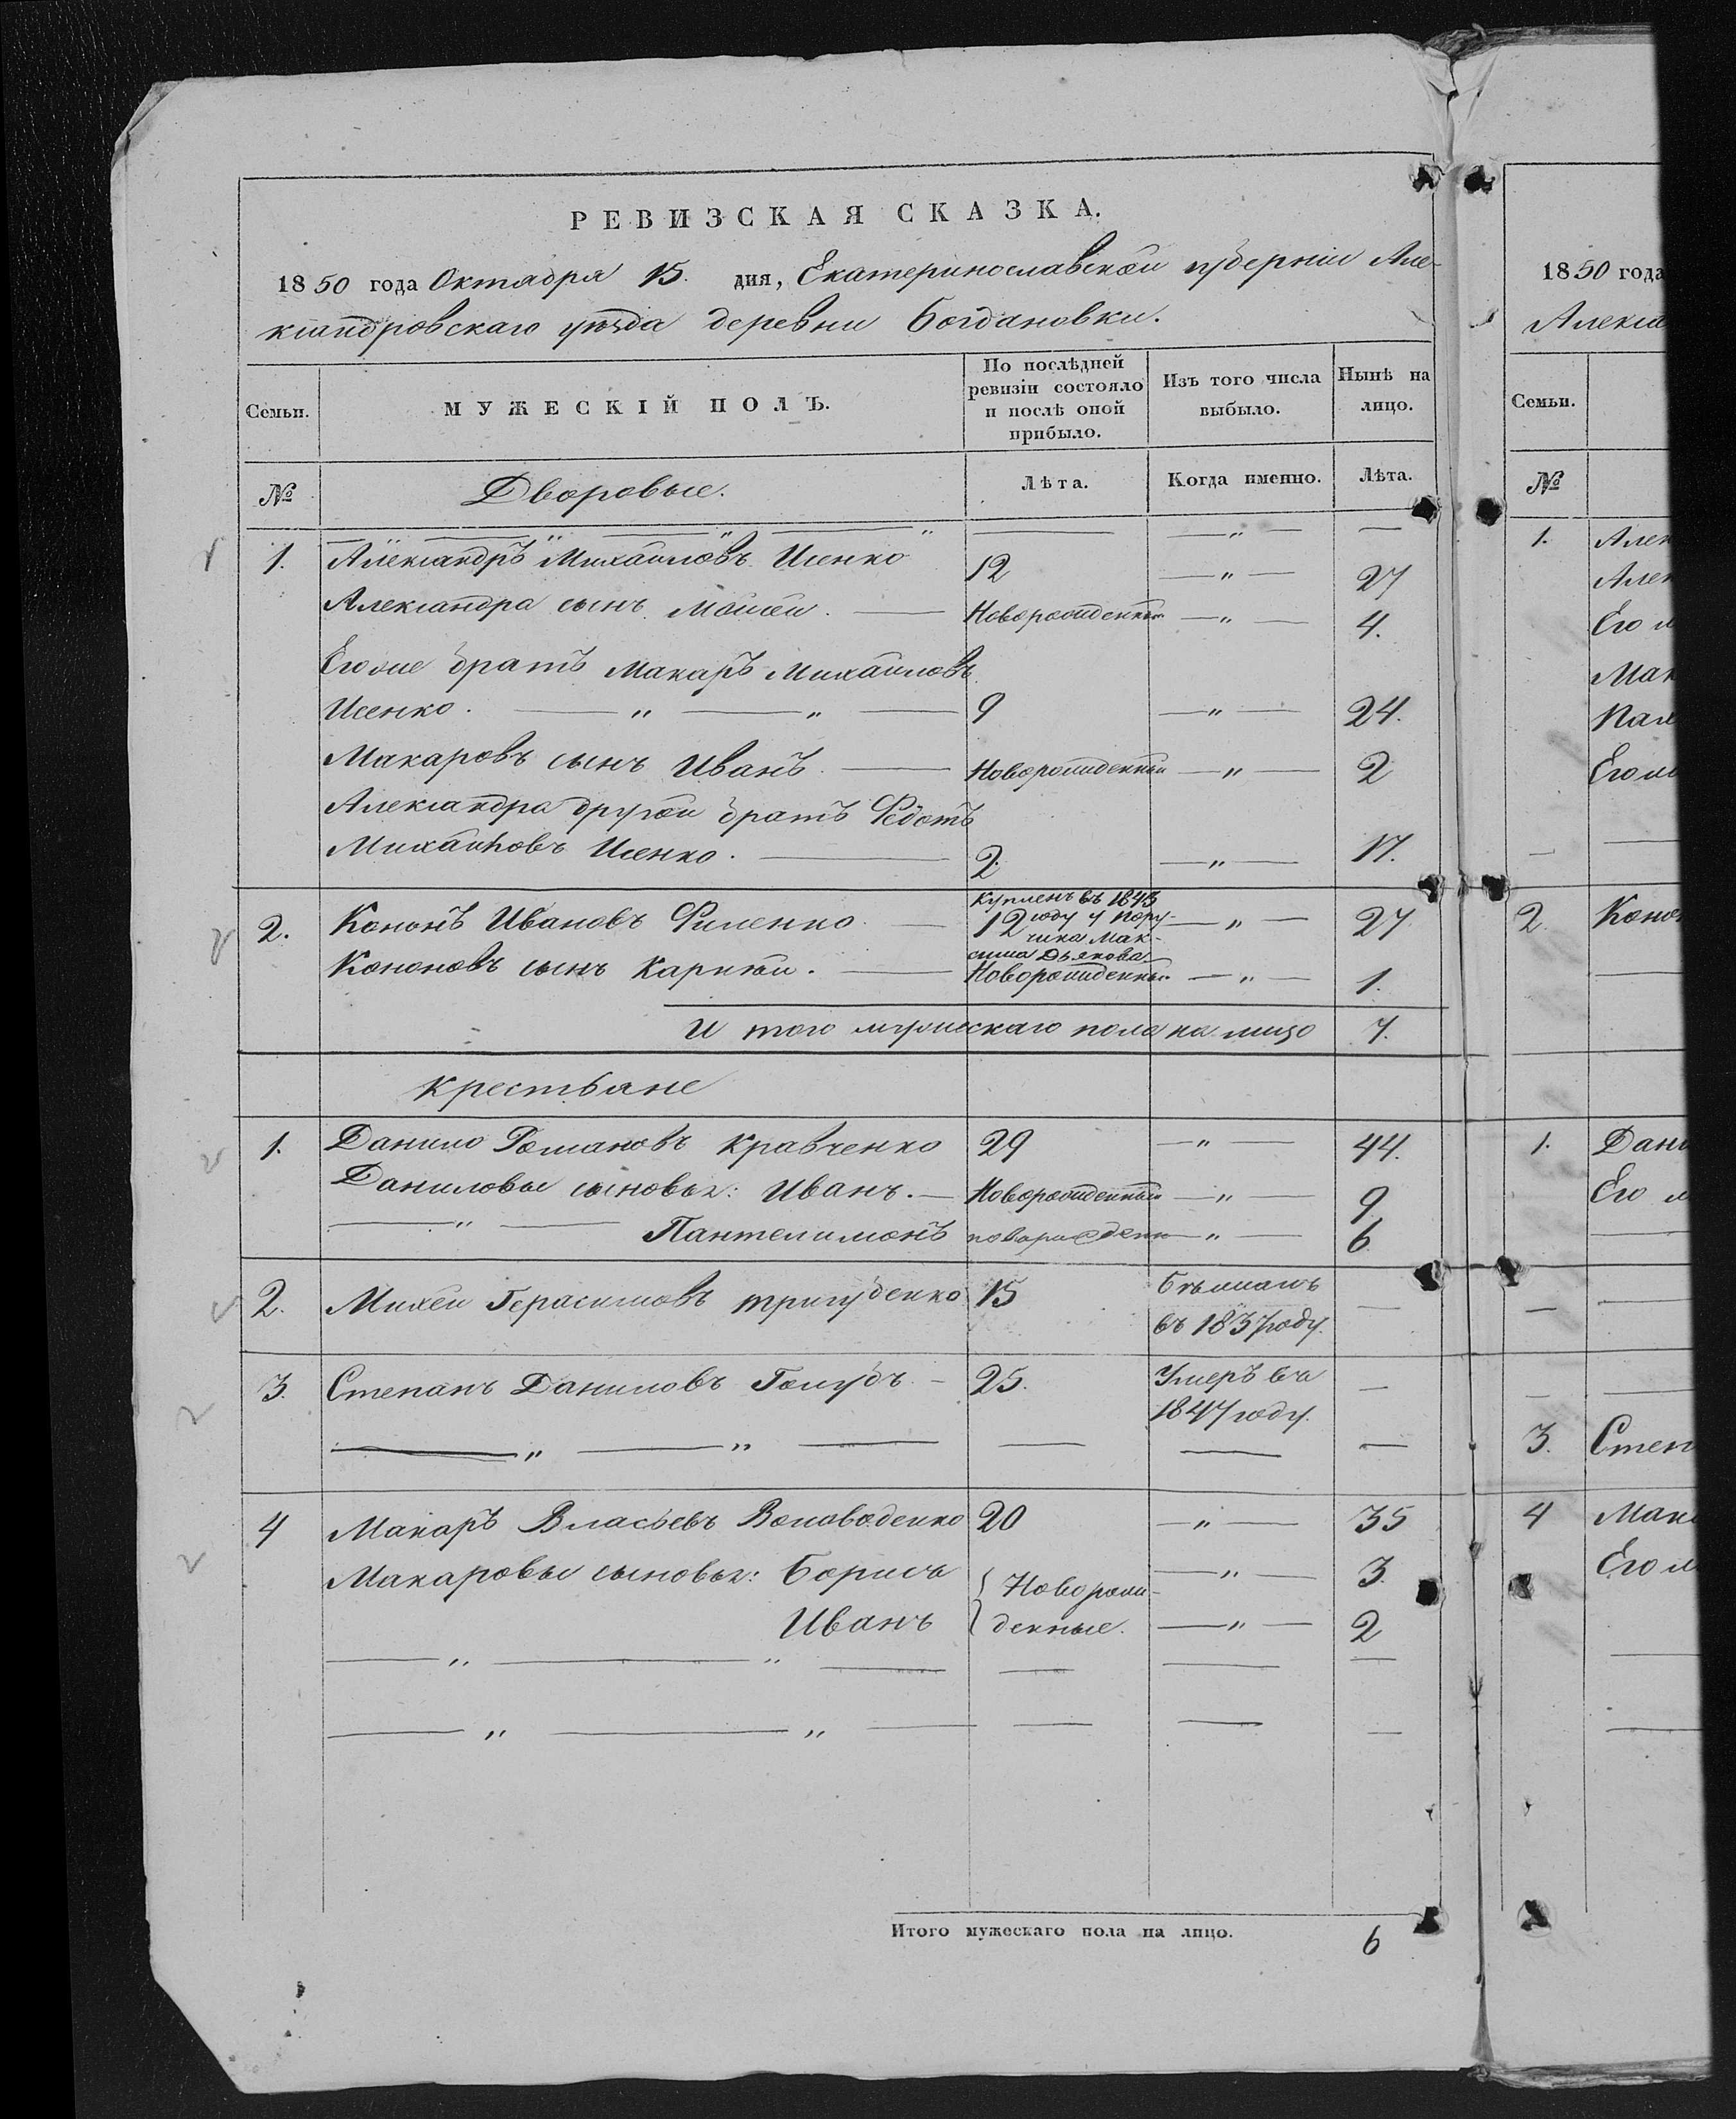 РЕВИЗСКАЯ СКАЗКА.
1850 года Октября 15. дня, Екатеринославской губерніи Але-
ксандровскаго уѣзда деревни Богдановки.
Семьи.
МУЖЕСКІЙ ПОЛЪ.
По послѣдней ревизіи состояло и послѣ оной прибыло.
Изъ того числа выбыло.
Нынѣ на лицо.
№ Дворовые. Лѣта. Когда именно. Лѣта.
1. Александръ Михайловъ Исенко 12 — „ — 27
Александра сынъ Мойсей. — Новорожденный — „ — 4.
Его же братъ Макаръ Михайловъ
Исенко. — „ — „ — 9 — „ — 24.
Макаровъ сынъ Иванъ. — Новорожденный — „ — 2
Александра другой братъ Федотъ
Михайловъ Исенко. — 2. — „ — 17.
2. Кононъ Ивановъ Филенко — 12 — „ — 27
Купленъ въ 1843
году у Пору-
чика Мак-
сима Дьякова
Кононовъ сынъ Карпѣй. — Новорожденный — „ — 1.
И того мужескаго пола на лицо 7.
Крестьяне
1. Данило Романовъ Кравченко 29 — „ — 44.
Даниловы сыновья: Иванъ. — Новорожденный — „ — 9
— „ — Пантелимонъ новорожденн — „ — 6
2. Михей Герасимовъ Тригубенко 15 Бѣжалъ —
въ 1837 году.
3. Степанъ Даниловъ Голубъ — 25. Умеръ въ —
1847 году.
— „ — „ — — — —
4 Макаръ Власьевъ Воловоденко 20 — „ — 35
Макаровы сыновья: Борисъ { Новорож- — „ — 3.
Иванъ денные. — „ — 2
— „ — „ — — — —
— „ — „ — — — —
Итого мужескаго пола на лицо. 6
1850 года
Алекса
Семьи.
№
1. Алек
Алек
Его
Мак
Пал
Его
—
2. Коно
1. Дани
Его
—
—
3. Степ
4 Мака
Его